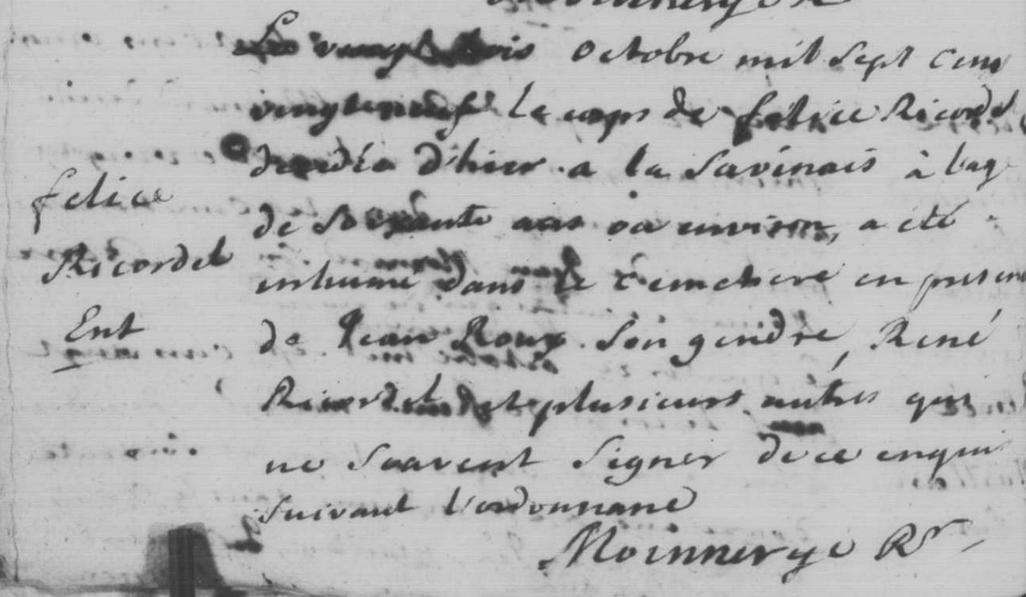 Le vingt trois octobre mil sept cens
vingt neuf le corps de felice Ricordel
decedée d'hier a la Savinais à l'ag
felice
de Soixante ans ou environ, a été
Ricordel
inhumé dans le Cemetiere en presen
Ent
de Jean Roux son gendre, René
Ricordel et plusieurs autres qui
ne scavent signer de ce enqui
suivant l'ordonnane
Moinnerye Rr